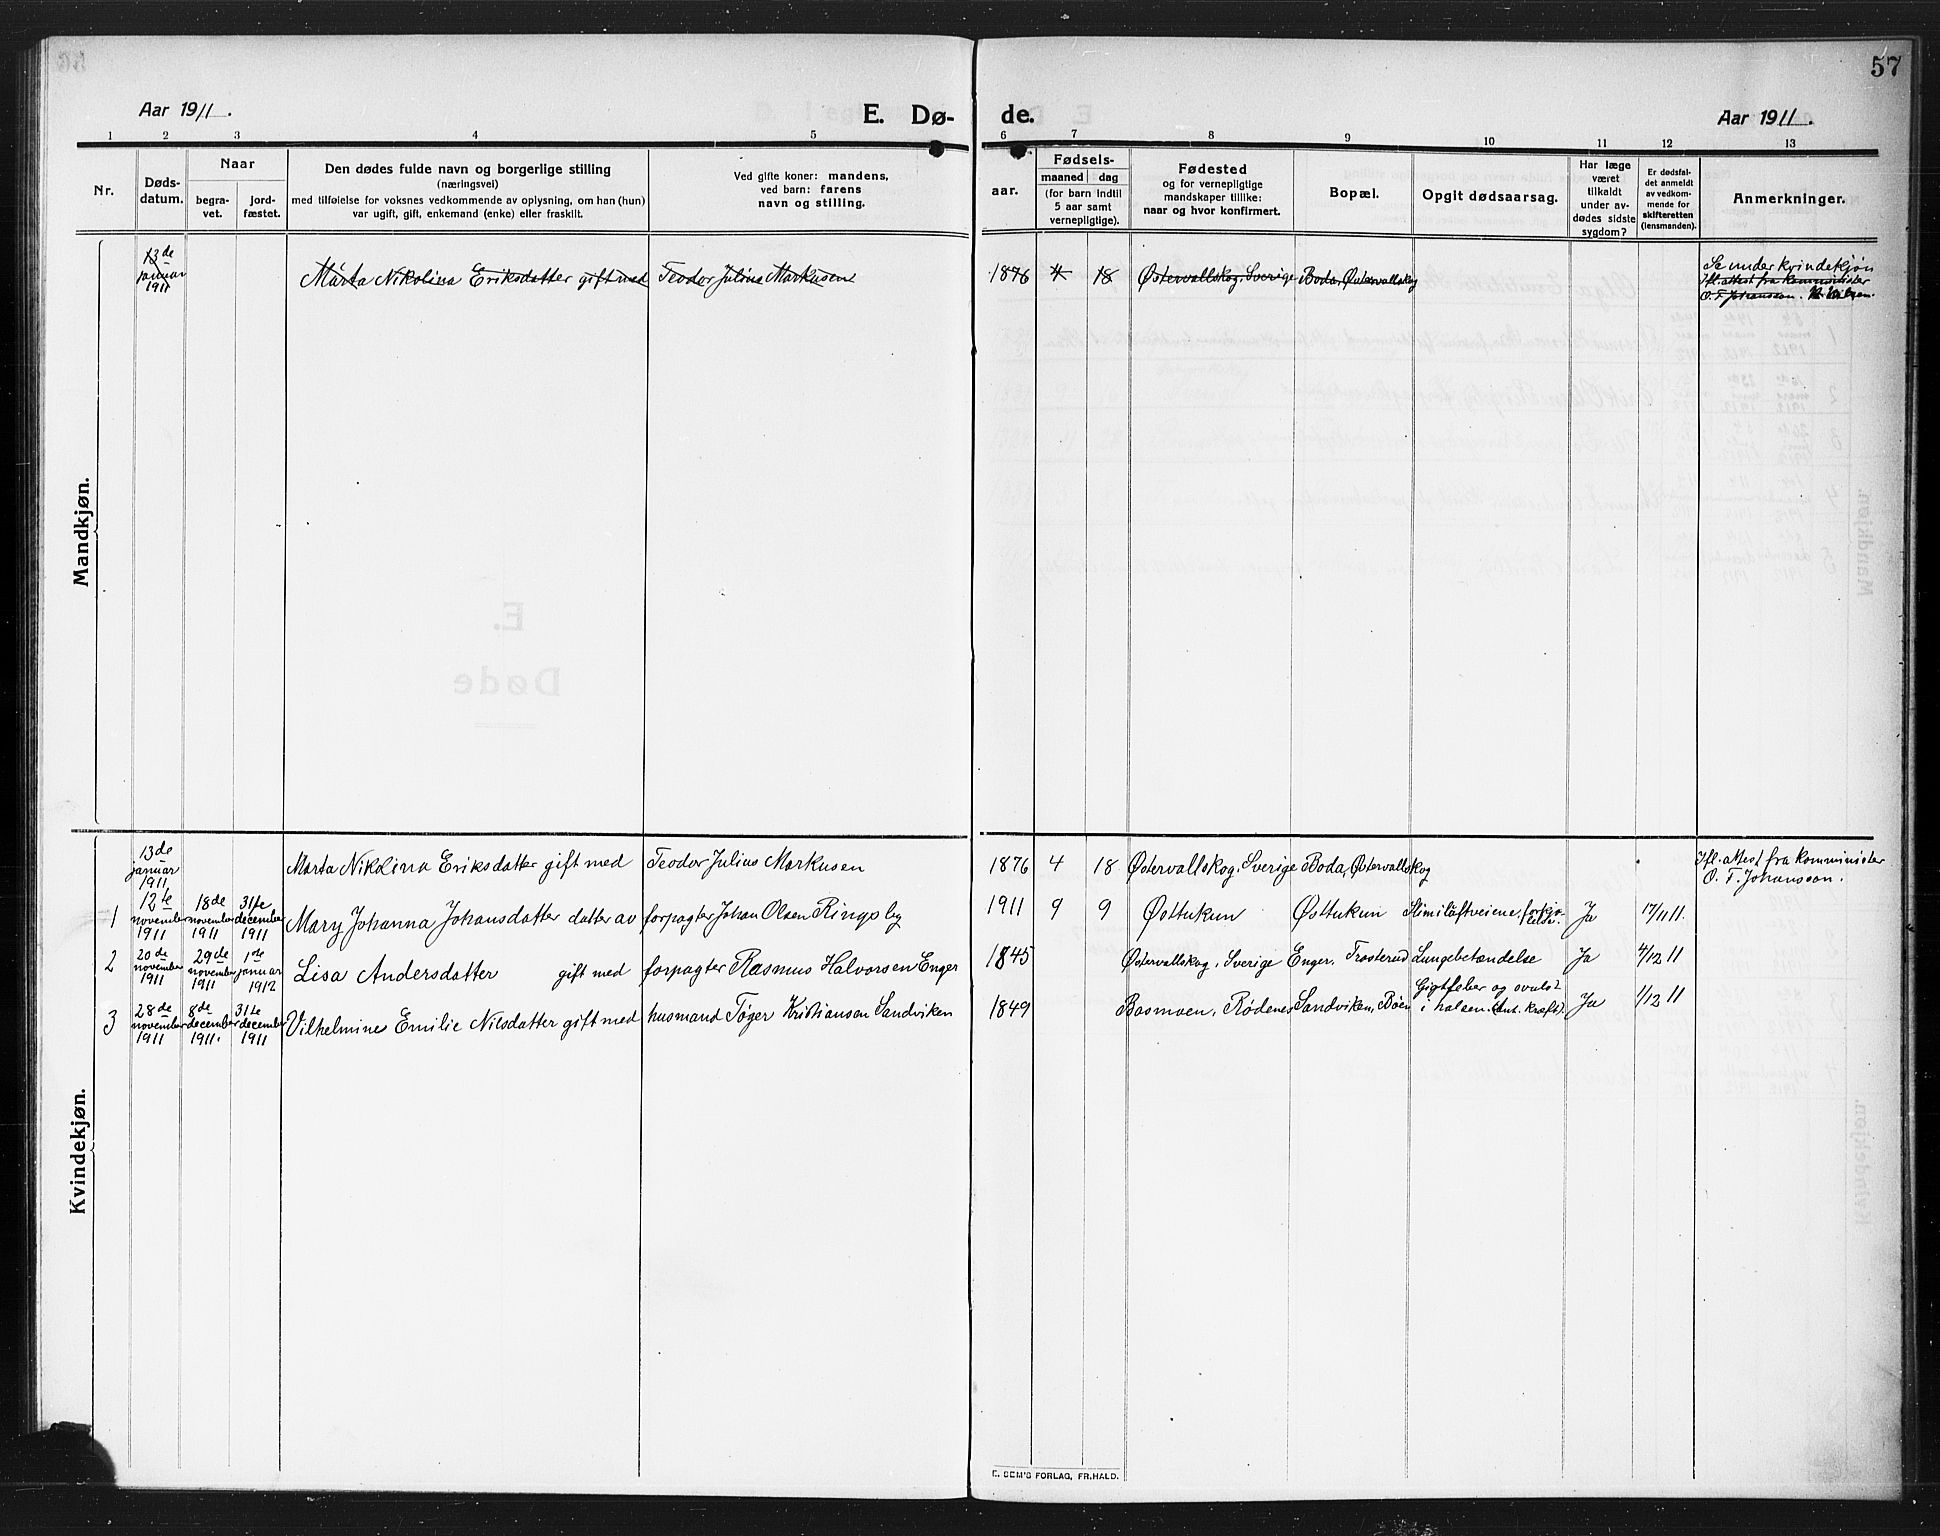 57
Aar 1911.
E. Dø-
de.
Aar 1911.
1 2 3 4 5 6 7 8 9 10 11 12 13
Nr.
Døds-
datum.
Naar
begra-
vet.
jord-
fæstet.
Den dødes fulde navn og borgerlige stilling
(næringsvei)
med tilføielse for voksnes vedkommende av oplysning, om han (hun)
var ugift, gift, enkemand (enke) eller fraskilt.
Ved gifte koner: mandens,
ved barn: farens
navn og stilling.
aar.
Fødsels-
maaned dag
(for barn indtil
5 aar samt
vernepligtige).
Fødested
og for vernepligtige
mandskaper tillike:
naar og hvor konfirmert.
Bopæl.
Opgit dødsaarsag.
Har læge
været
tilkaldt
under av-
dødes sidste
sygdom?
Er dødsfal-
det anmeldt
av vedkom-
mende for
skifteretten
(lensmanden).
Anmerkninger.
Mandkjøn.
13de
januar
1911
Märta Nikolina Eriksdatter gift med
Teodor Julius Markusen
1876 4 18
Østervallskog, Sverige
Boda, Østervallskog
Se under kvindekjøn
Ifl. attest fra komminister
O. F. Johansson.
Kvindekjøn.
13de
januar
1911
Marta Nikolina Eriksdatter gift med
Teodor Julius Markusen
1876 4 18
Østervallskog, Sverige
Boda, Østervallskog
Ifl. attest fra komminister
O. F. Johansson.
1
12te
november
1911
18de
november
1911
31te
december
1911
Mary Johanna Johansdatter datter av
forpagter Johan Olsen Ringsby
1911 9 9
Østtukun
Østtukun
Slimiluftveiene,
Ja
17/11 11.
2
20de
november
1911
29de
november
1911
1de
januar
1912
Lisa Andersdatter gift med
forpagter Rasmus Halvorsen Enger
1845
Østervallskog, Sverige
Enger, Trosterud
Lungebetændelse
Ja
4/12 11
3
28de
november
1911
8de
december
1911.
31te
december
1911
Vilhelmine Emilie Nilsdatter gift med
husmand Tøger Kristianson Sandviken
1849
Basmoen, Rødenes
Sandviken, Bøen
Gigtfeber og svulst
i halsen. (Ant. kræft).
Ja
1/12 11
E.
Døde
E. SEM'S FORLAG, FR.HALD.